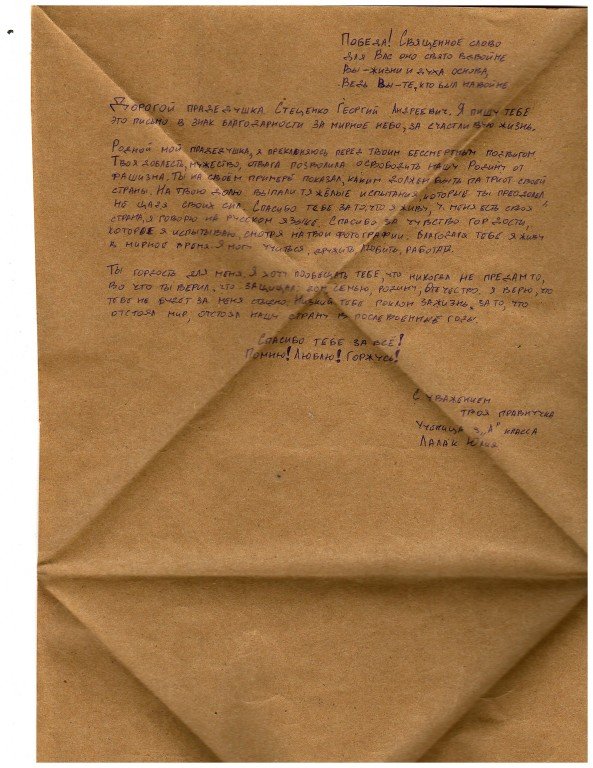 Победа! Священное слово
для Вас оно свято вдвойне
Вы-жизни и духа основа,
Ведь Вы-те, кто был на войне
Дорогой прадедушка Стеценко Георгий Андреевич. Я пишу тебе
это письмо в знак благодарности за мирное небо, за счастливую жизнь.
Родной мой прадедушка, я преклоняюсь перед твоим бессмертным подвигом
Твоя доблесть, мужество, отвага позволила освободить нашу Родину от
фашизма. Ты на своем примере показал, каким должен быть патриот своей
страны. На твою долю выпали тяжелые испытания, которые ты преодолел
не щадя своих сил. Спасибо тебе за то, что я живу, у меня есть своя
страна, я говорю на русском языке. Спасибо за чувство гордости,
которое я испытываю, смотря на твои фотографии. Благодаря тебе я живу
в мирное время. Я могу учиться, дружить, любить, работай.
Ты гордость для меня. Я хочу пообещать тебе, что никогда не предам то,
во что ты верил, что защищал: дом, семью, родину, Отечество. Я верю, что
тебе не будет за меня стыдно. Низкий тебе поклон за жизнь, за то, что
отстоял мир, отстоял нашу страну в послевоенные годы.
Спасибо тебе за всё!
Помню! Люблю! Горжусь!
С уважением
твоя правнучка
Ученица 3 „А" класса
Лалак Юлия